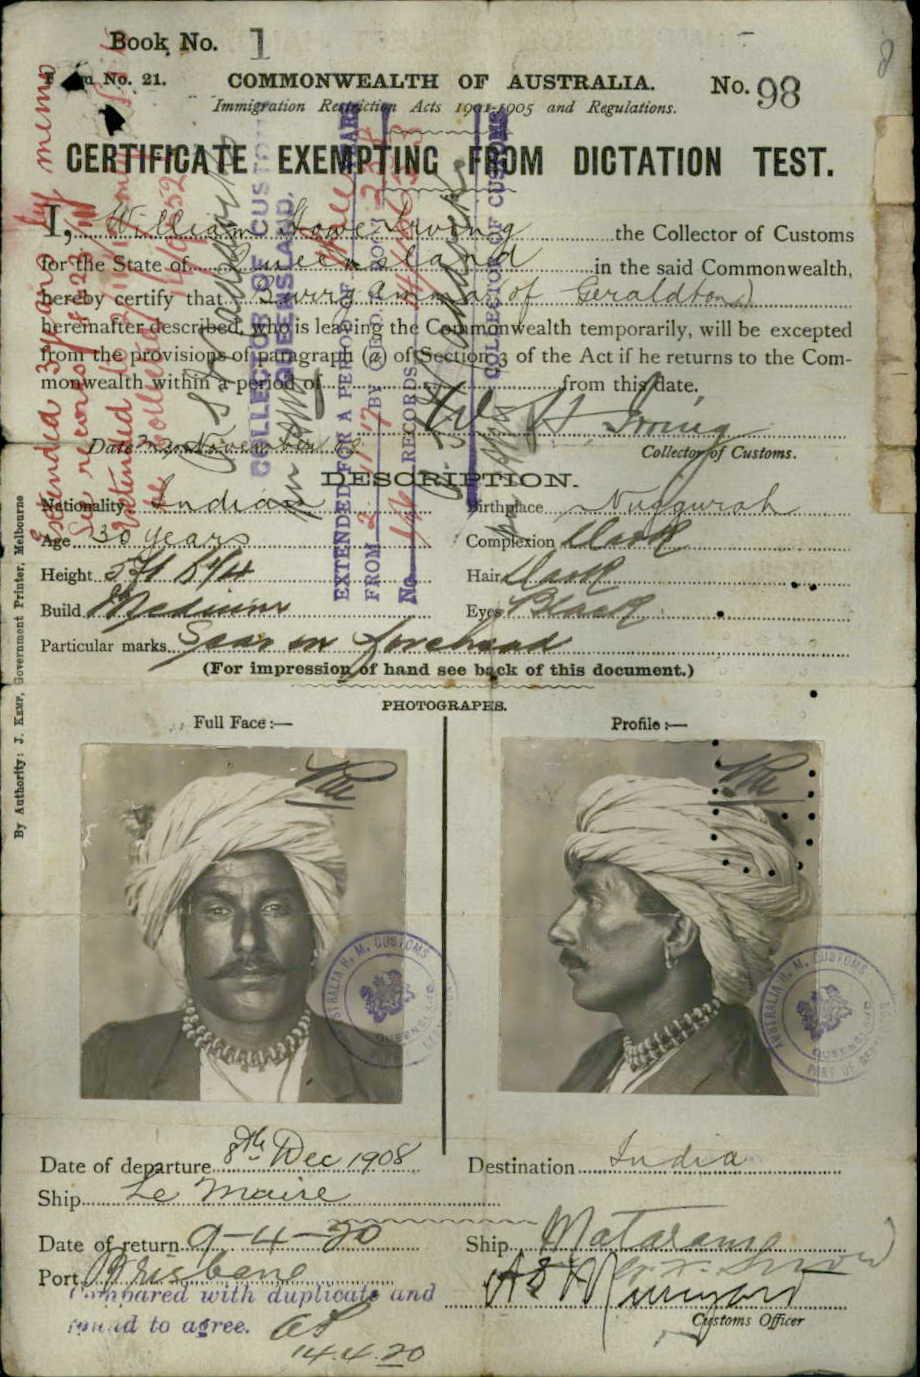 Book No. 1
Form No. 21.
COMMONWEALTH OF AUSTRALIA.
No. 98
Immigration Restriction Acts 1901-1905 and Regulations.
CERTIFICATE EXEMPTING FROM DICTATION TEST.
I, William Howe Irving the Collector of Customs
for the State of Queensland in the said Commonwealth,
hereby certify that of Geraldton
hereinafter described, who is leaving the Commonwealth temporarily, will be excepted
from the provisions of paragraph (a) of Section 3 of the Act if he returns to the Com-
monwealth within a period of from this date.
W H Irving
Date November 08
Collector of Customs.
DESCRIPTION.
Nationality Indian
Birthplace
Age 30 years
Complexion Dark
Height 5ft
Hair Dark
Build Medium
Eyes Black
Particular marks Scar on forehead
(For impression of hand see back of this document.)
COLLECTOR OF CUSTOMS
QUEENSLAND.
EXTENDED FOR A PERIOD OF YEARS
FROM BY C.T.O. NO.
No. RECORDS
COLLECTOR OF CUSTOMS
Extended 3 years by memo
By Authority: J. KEMP, Government Printer, Melbourne
PHOTOGRAPHS.
Full Face :—
Profile :—
AUSTRALIA H. M. CUSTOMS
QUEENSLAND
AUSTRALIA H. M. CUSTOMS
QUEENSLAND
PORT OF
Date of departure 8th Dec 1908
Destination India
Ship Le Maire
Date of return 9-4-20
Ship Mataram
Port Brisbane
Compared with duplicate and
found to agree.
14.4.20
Customs Officer